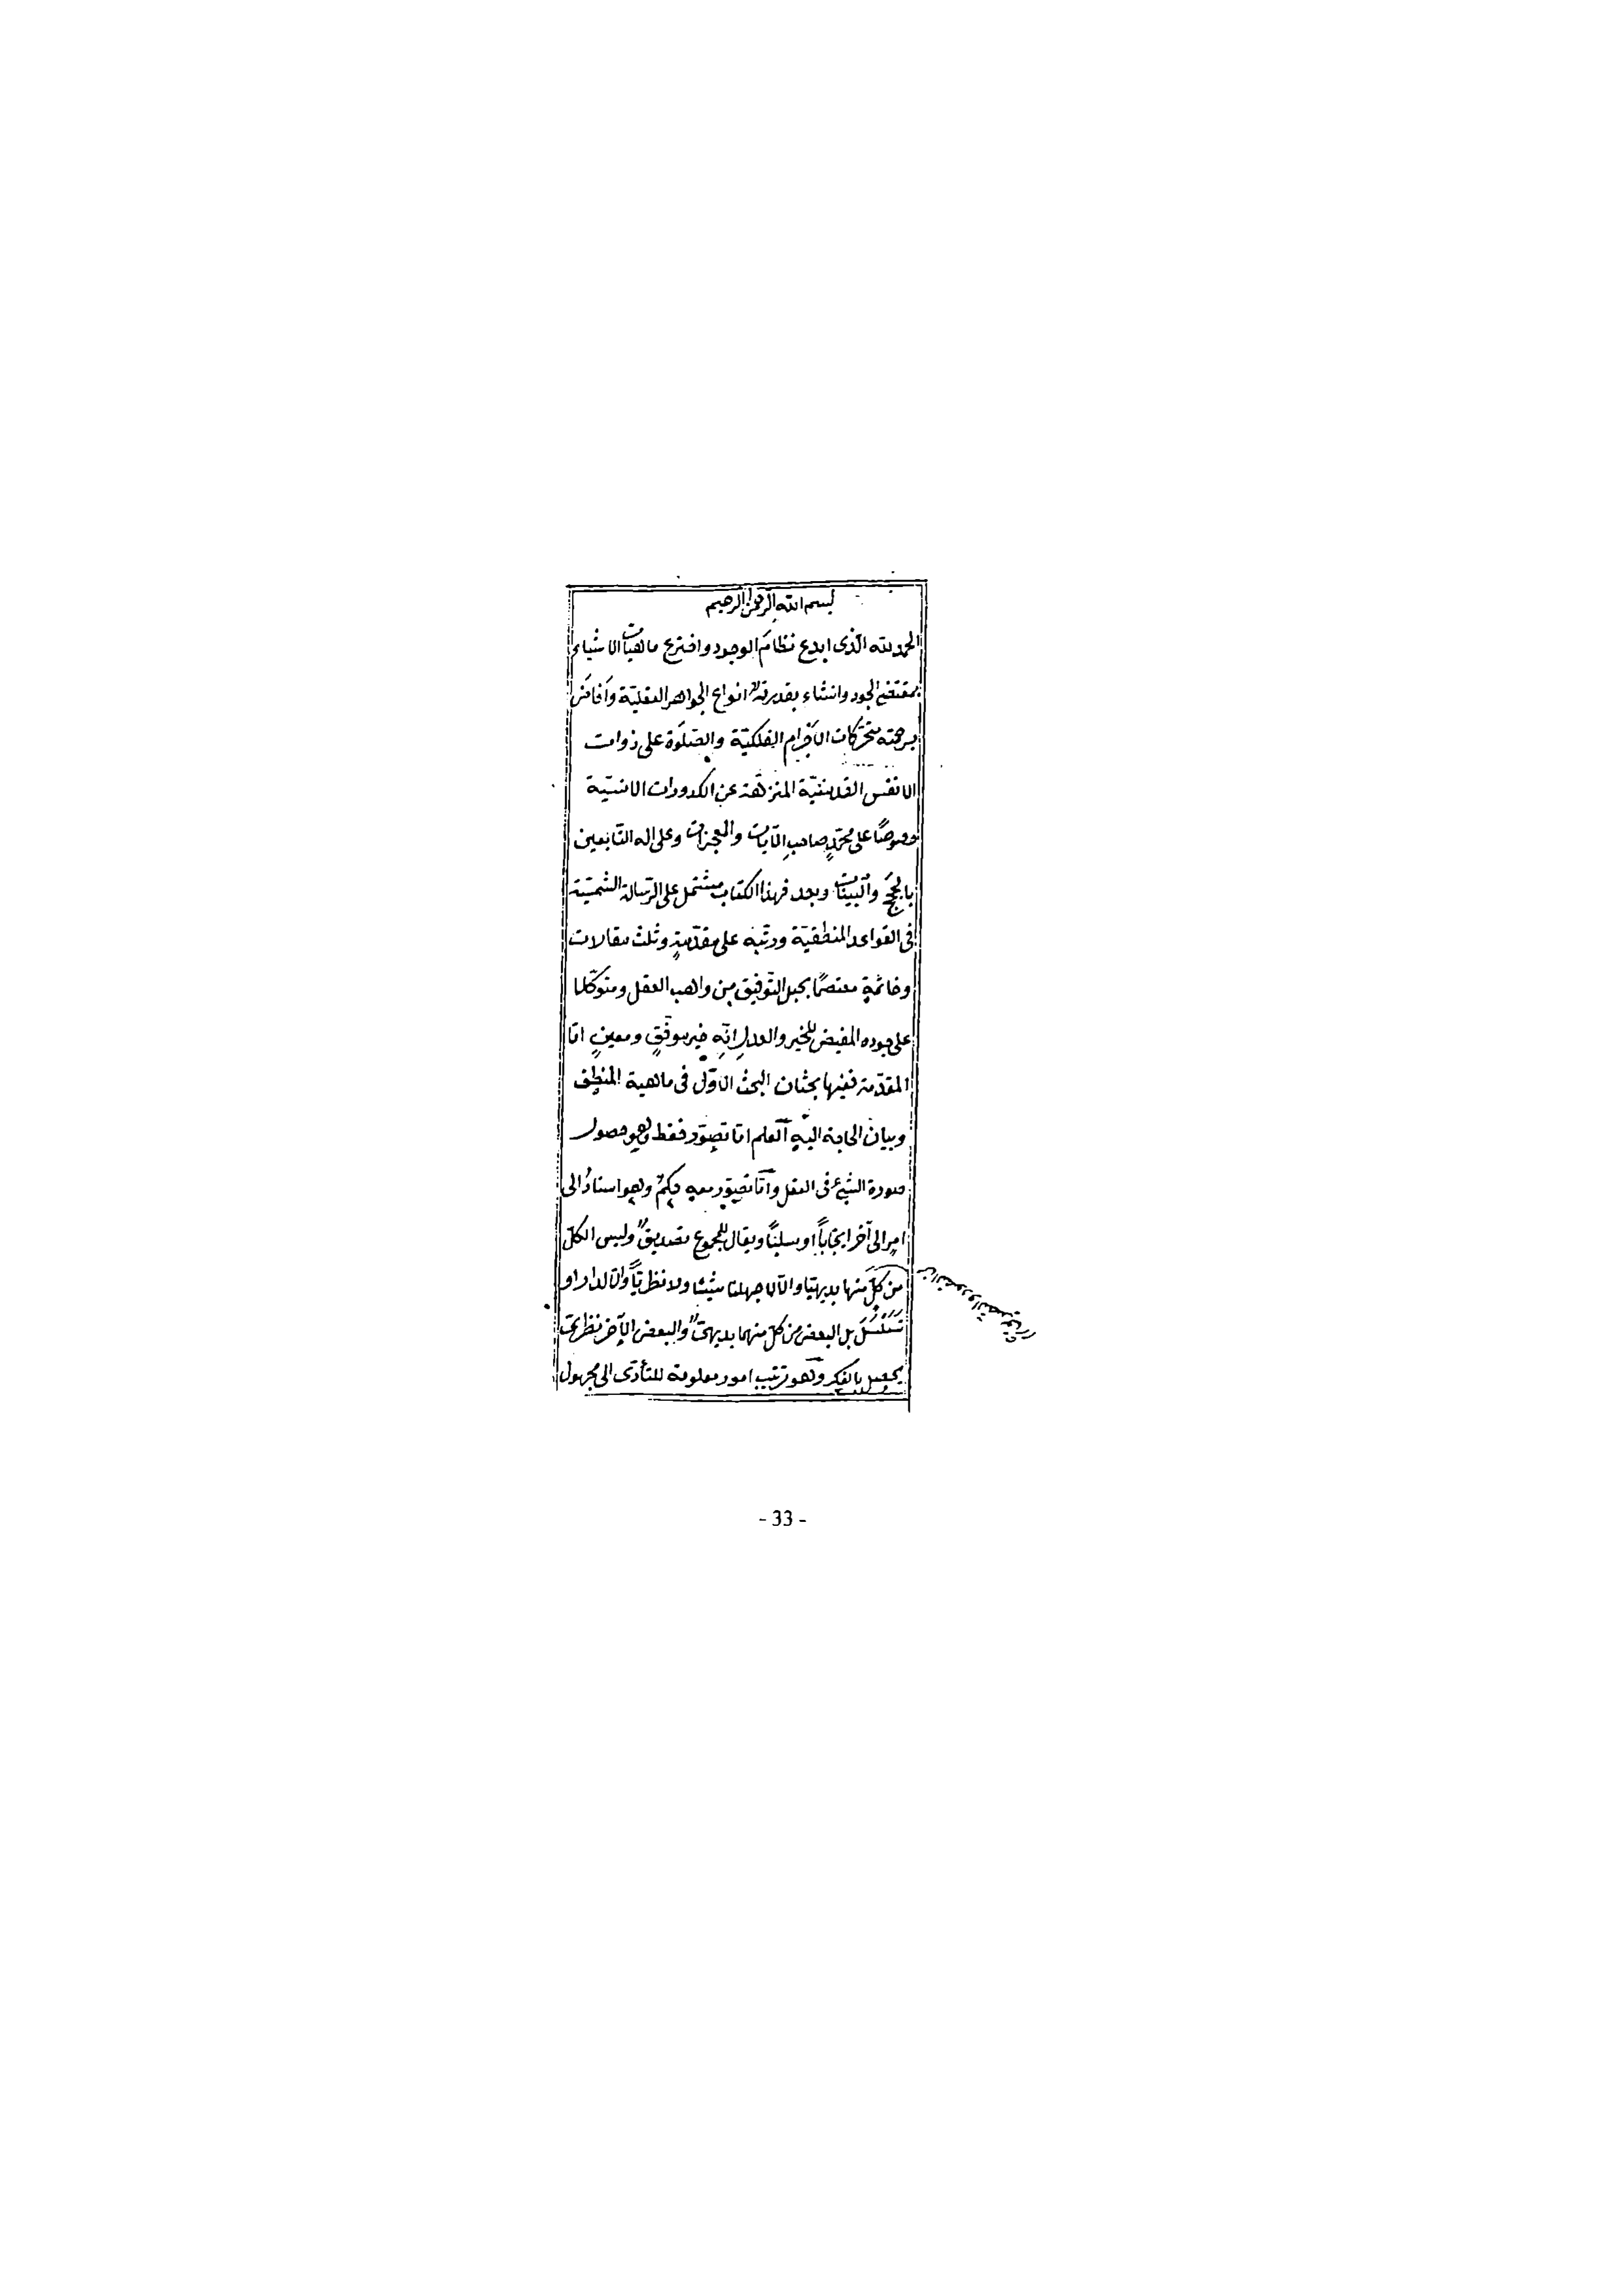 بسم الله الرحمن الرحيم
الحمد لله الّذى ابدع نظامَ الوجود واخترع ماهيّات الاشياء
بمقتضى الجود وانشاء بقدرته انواع الجواهر العقليّة وافاض
برحمته محرّكات الاَجْرام الفلكيّة والصّلوة على ذوات
الانفس القدسيّة المنزهة عن الكدورات الانسيّة
خصوصًا على محمّدٍ صاحبِ الآيات والمعجزات وعلى اله التّابعين
بالحجج والبيّنات وبعد فهذا الكتاب مشتمل على الرّسالة الشمسيّة
فى القواعد المنطقيّة ورتّبته على مقدّمةٍ وثلث مقالات
وخاتمةٍ معتصمًا بحبل التّوفيق من واهب العقل ومتوكّلا
على جوده المفيض للخير والعدل انّه خير موفّقٍ ومعينٍ امّا
المقدّمة ففيها بحثان البحث الاوّل فى ماهية المنطق
وبيان الحاجة اليه العلم امّا تصوّر فقط وهو حصول
صورة الشيئ فى العقل وامّا تصوّر معه حكمٌ وهو اسنادُ
امرٍ الى آخر ايجاباً او سلبًا ويقال للمجموع تصديقٌ وليس الكلّ
من كلّ منهما بديهيّا والّا لما جهلنا شيئا ولا نظريّاً والّا لدار او
تَسَلْسَلَ بل البعض من كلّ منهما بديهىّ والبعض الآخر نظرىّ
يحصل بالفكر وهو ترتيب امور معلومة للتأدّى الى مجهول
- 33 -